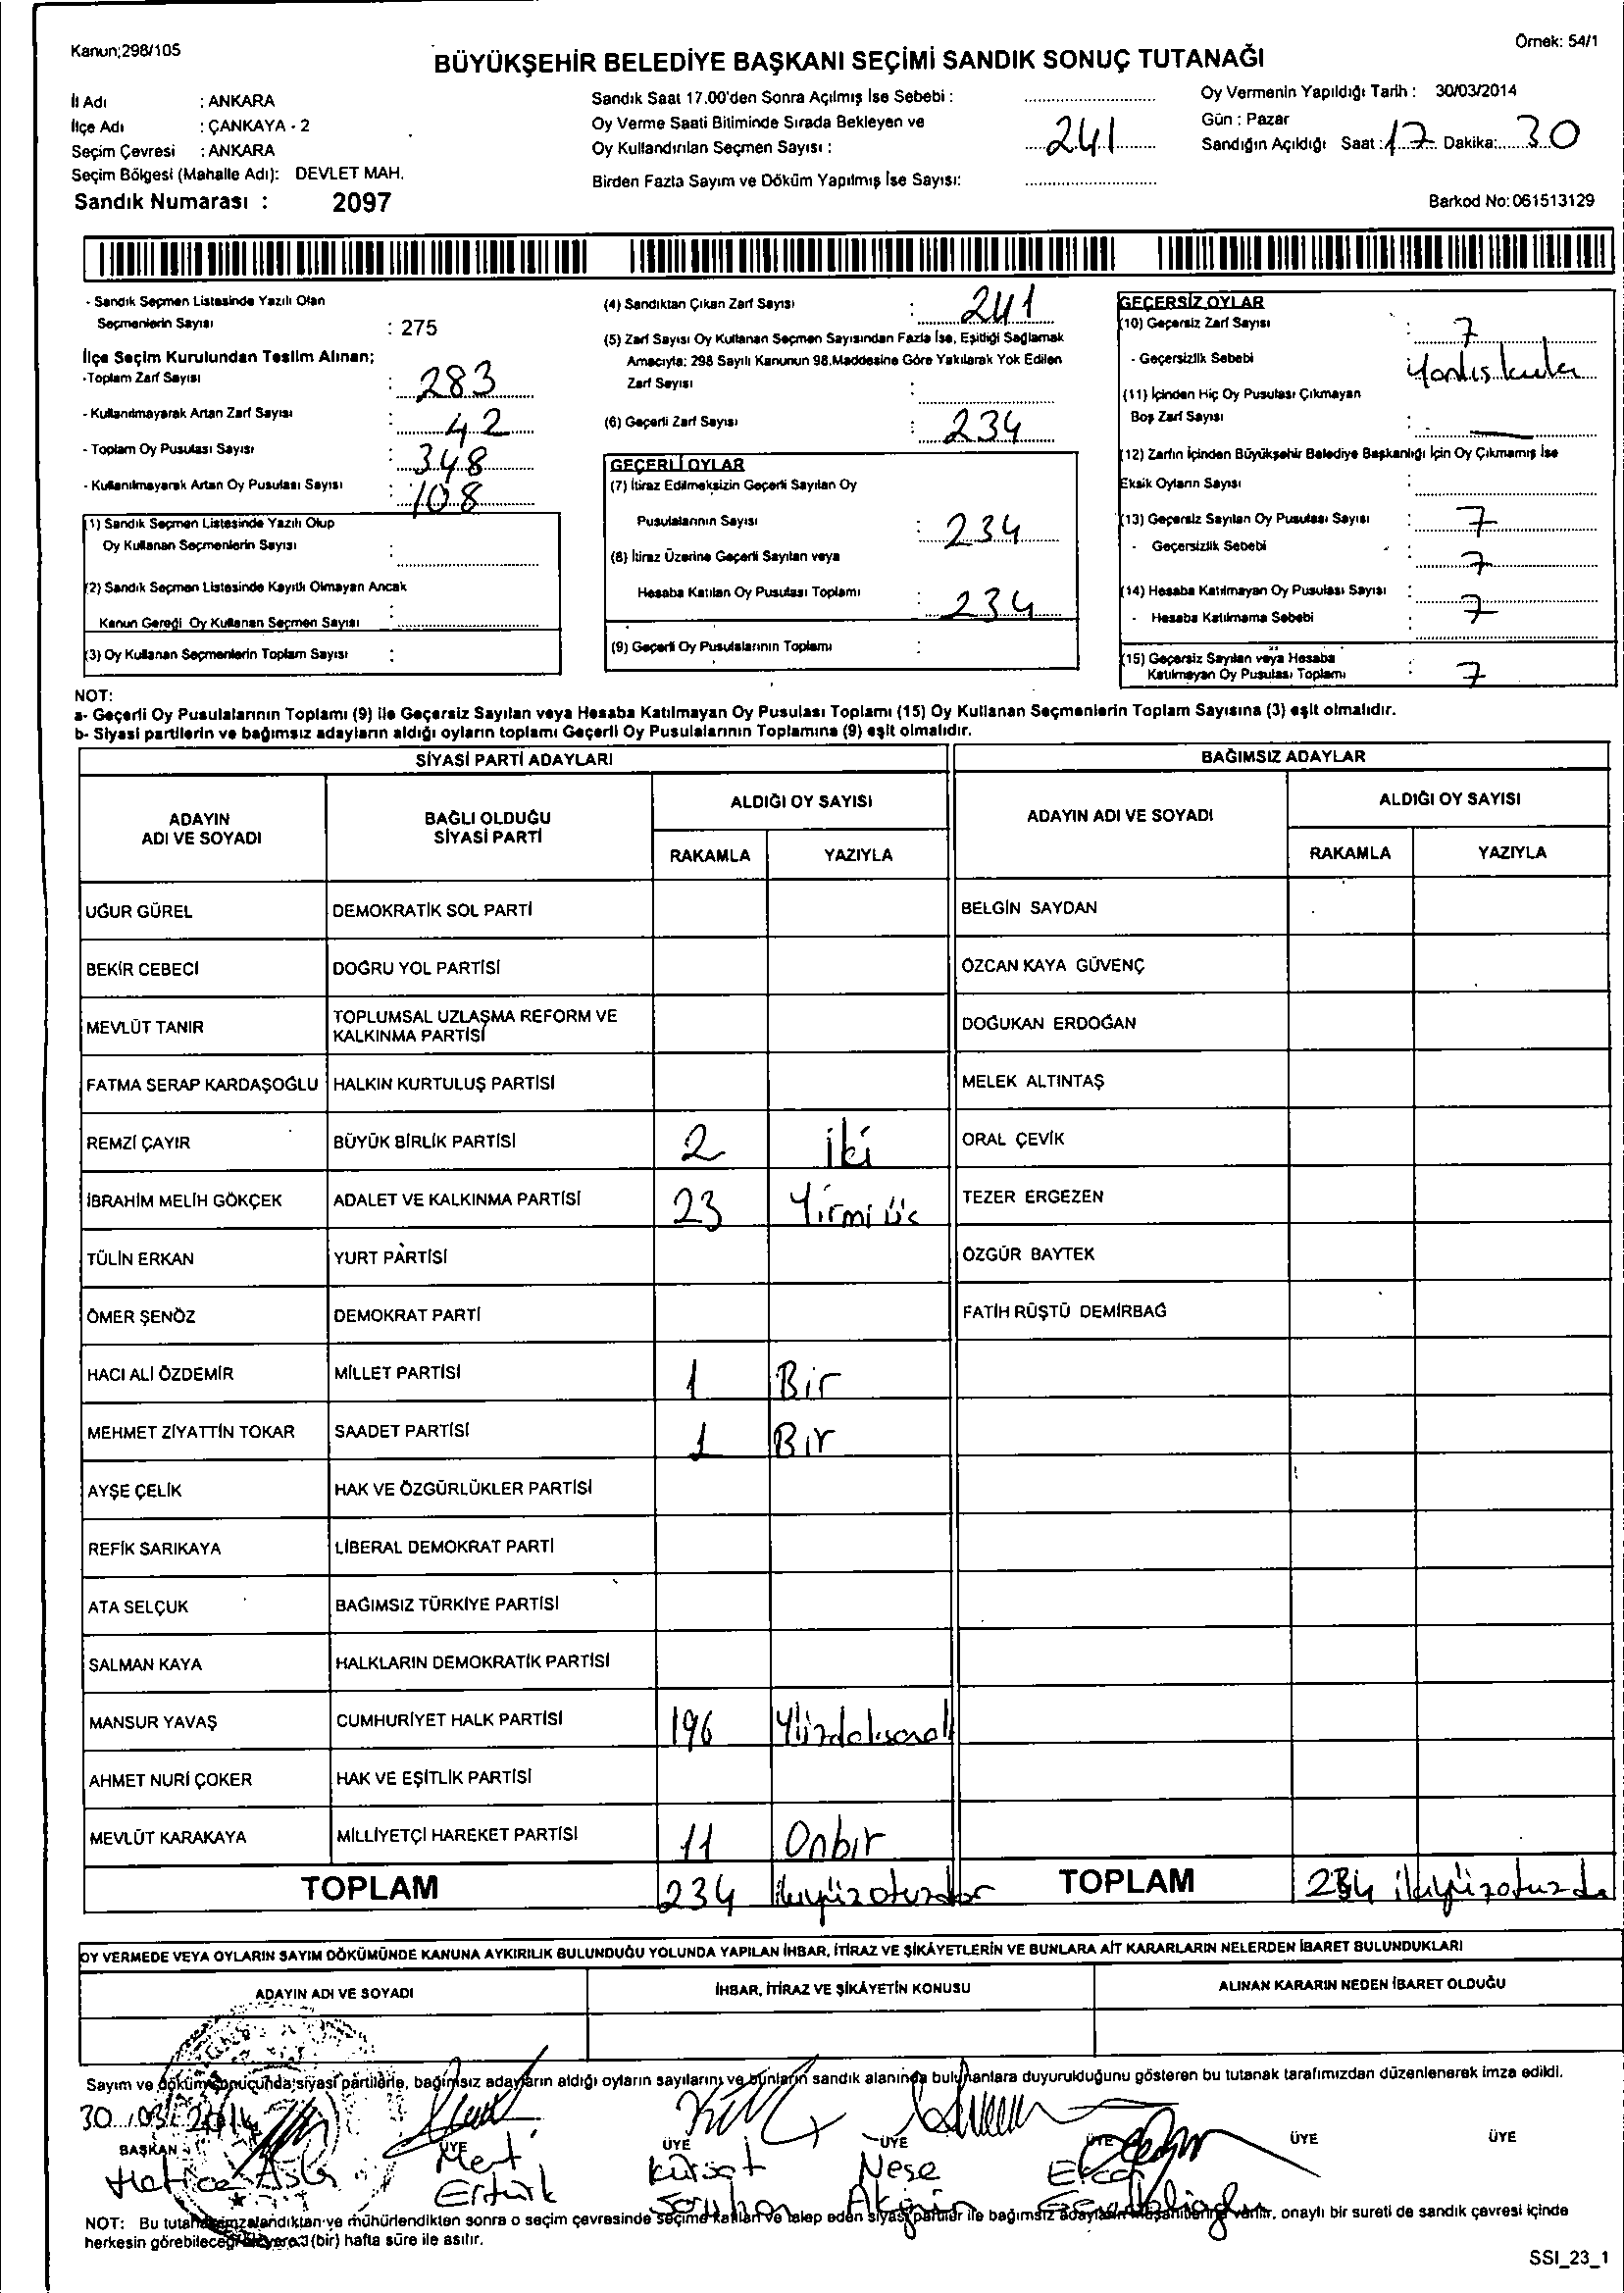 Kanun;298/105
Örnek: 54/1
BÜYÜKŞEHİR BELEDİYE BAŞKANI SEÇİMİ SANDIK SONUÇ TUTANAĞI
İl Adı : ANKARA
İlçe Adı : ÇANKAYA - 2
Seçim Çevresi : ANKARA
Seçim Bölgesi (Mahalle Adı): DEVLET MAH.
Sandık Numarası : 2097
Sandık Saat 17.00'den Sonra Açılmış İse Sebebi :
Oy Verme Saati Bitiminde Sırada Bekleyen ve
Oy Kullandırılan Seçmen Sayısı : 241
Birden Fazla Sayım ve Döküm Yapılmış İse Sayısı:
Oy Vermenin Yapıldığı Tarih : 30/03/2014
Gün : Pazar
Sandığın Açıldığı Saat : 17 Dakika: 30
Barkod No: 061513129
- Sandık Seçmen Listesinde Yazılı Olan
Seçmenlerin Sayısı : 275
İlçe Seçim Kurulundan Teslim Alınan;
-Toplam Zarf Sayısı : 283
- Kullanılmayarak Artan Zarf Sayısı : 42
- Toplam Oy Pusulası Sayısı : 348
- Kullanılmayarak Artan Oy Pusulası Sayısı : 108
(1) Sandık Seçmen Listesinde Yazılı Olup
Oy Kullanan Seçmenlerin Sayısı :
(2) Sandık Seçmen Listesinde Kayıtlı Olmayan Ancak
Kanun Gereği Oy Kullanan Seçmen Sayısı :
(3) Oy Kullanan Seçmenlerin Toplam Sayısı :
(4) Sandıktan Çıkan Zarf Sayısı : 241
(5) Zarf Sayısı Oy Kullanan Seçmen Sayısından Fazla İse, Eşitliği Sağlamak
Amacıyla; 298 Sayılı Kanunun 98.Maddesine Göre Yakılarak Yok Edilen
Zarf Sayısı :
(6) Geçerli Zarf Sayısı : 234
GEÇERLİ OYLAR
(7) İtiraz Edilmeksizin Geçerli Sayılan Oy
Pusulalarının Sayısı : 234
(8) İtiraz Üzerine Geçerli Sayılan veya
Hesaba Katılan Oy Pusulası Toplamı : 234
(9) Geçerli Oy Pusulalarının Toplamı :
GEÇERSİZ OYLAR
(10) Geçersiz Zarf Sayısı : 7
- Geçersizlik Sebebi : Yanlış
(11) İçinden Hiç Oy Pusulası Çıkmayan
Boş Zarf Sayısı : —
(12) Zarfın İçinden Büyükşehir Belediye Başkanlığı İçin Oy Çıkmamış İse
Eksik Oyların Sayısı :
(13) Geçersiz Sayılan Oy Pusulası Sayısı : 7
- Geçersizlik Sebebi : 7
(14) Hesaba Katılmayan Oy Pusulası Sayısı : 7
- Hesaba Katılmama Sebebi :
(15) Geçersiz Sayılan veya Hesaba
Katılmayan Oy Pusulası Toplamı : 7
NOT:
a- Geçerli Oy Pusulalarının Toplamı (9) ile Geçersiz Sayılan veya Hesaba Katılmayan Oy Pusulası Toplamı (15) Oy Kullanan Seçmenlerin Toplam Sayısına (3) eşit olmalıdır.
b- Siyasi partilerin ve bağımsız adayların aldığı oyların toplamı Geçerli Oy Pusulalarının Toplamına (9) eşit olmalıdır.
SİYASİ PARTİ ADAYLARI BAĞIMSIZ ADAYLAR
ADAYIN ADI VE SOYADI BAĞLI OLDUĞU SİYASİ PARTİ ALDIĞI OY SAYISI ADAYIN ADI VE SOYADI ALDIĞI OY SAYISI
RAKAMLA YAZIYLA RAKAMLA YAZIYLA
UĞUR GÜREL DEMOKRATİK SOL PARTİ BELGİN SAYDAN
BEKİR CEBECİ DOĞRU YOL PARTİSİ ÖZCAN KAYA GÜVENÇ
MEVLÜT TANIR TOPLUMSAL UZLAŞMA REFORM VE KALKINMA PARTİSİ DOĞUKAN ERDOĞAN
FATMA SERAP KARDAŞOĞLU HALKIN KURTULUŞ PARTİSİ MELEK ALTINTAŞ
REMZİ ÇAYIR BÜYÜK BİRLİK PARTİSİ 2 iki ORAL ÇEVİK
İBRAHİM MELİH GÖKÇEK ADALET VE KALKINMA PARTİSİ 23 Yirmi üç TEZER ERGEZEN
TÜLİN ERKAN YURT PARTİSİ ÖZGÜR BAYTEK
ÖMER ŞENÖZ DEMOKRAT PARTİ FATİH RÜŞTÜ DEMİRBAĞ
HACI ALİ ÖZDEMİR MİLLET PARTİSİ 1 Bir
MEHMET ZİYATTİN TOKAR SAADET PARTİSİ 1 Bir
AYŞE ÇELİK HAK VE ÖZGÜRLÜKLER PARTİSİ
REFİK SARIKAYA LİBERAL DEMOKRAT PARTİ
ATA SELÇUK BAĞIMSIZ TÜRKİYE PARTİSİ
SALMAN KAYA HALKLARIN DEMOKRATİK PARTİSİ
MANSUR YAVAŞ CUMHURİYET HALK PARTİSİ 196
AHMET NURİ ÇOKER HAK VE EŞİTLİK PARTİSİ
MEVLÜT KARAKAYA MİLLİYETÇİ HAREKET PARTİSİ 11 Onbir
TOPLAM 234 TOPLAM 234
OY VERMEDE VEYA OYLARIN SAYIM DÖKÜMÜNDE KANUNA AYKIRILIK BULUNDUĞU YOLUNDA YAPILAN İHBAR, İTİRAZ VE ŞİKÂYETLERİN VE BUNLARA AİT KARARLARIN NELERDEN İBARET BULUNDUKLARI
ADAYIN ADI VE SOYADI İHBAR, İTİRAZ VE ŞİKÂYETİN KONUSU ALINAN KARARIN NEDEN İBARET OLDUĞU
Sayım ve döküm sonucunda siyasi partilerle, bağımsız adayların aldığı oyların sayılarını ve bunların sandık alanında bulunanlara duyurulduğunu gösteren bu tutanak tarafımızdan düzenlenerek imza edildi.
30 / 03 / 2014
BAŞKAN ÜYE ÜYE ÜYE ÜYE ÜYE ÜYE
Hatice Aslı Mert Kürşat Neşe
Ertürk
NOT: Bu tutanak imzalandıktan ve mühürlendikten sonra o seçim çevresinde seçime katılan ve talep eden siyasi partiler ile bağımsız adayların müşahitlerine verilir, onaylı bir sureti de sandık çevresi içinde
herkesin görebileceği bir yere 1 (bir) hafta süre ile asılır.
SSI_23_1